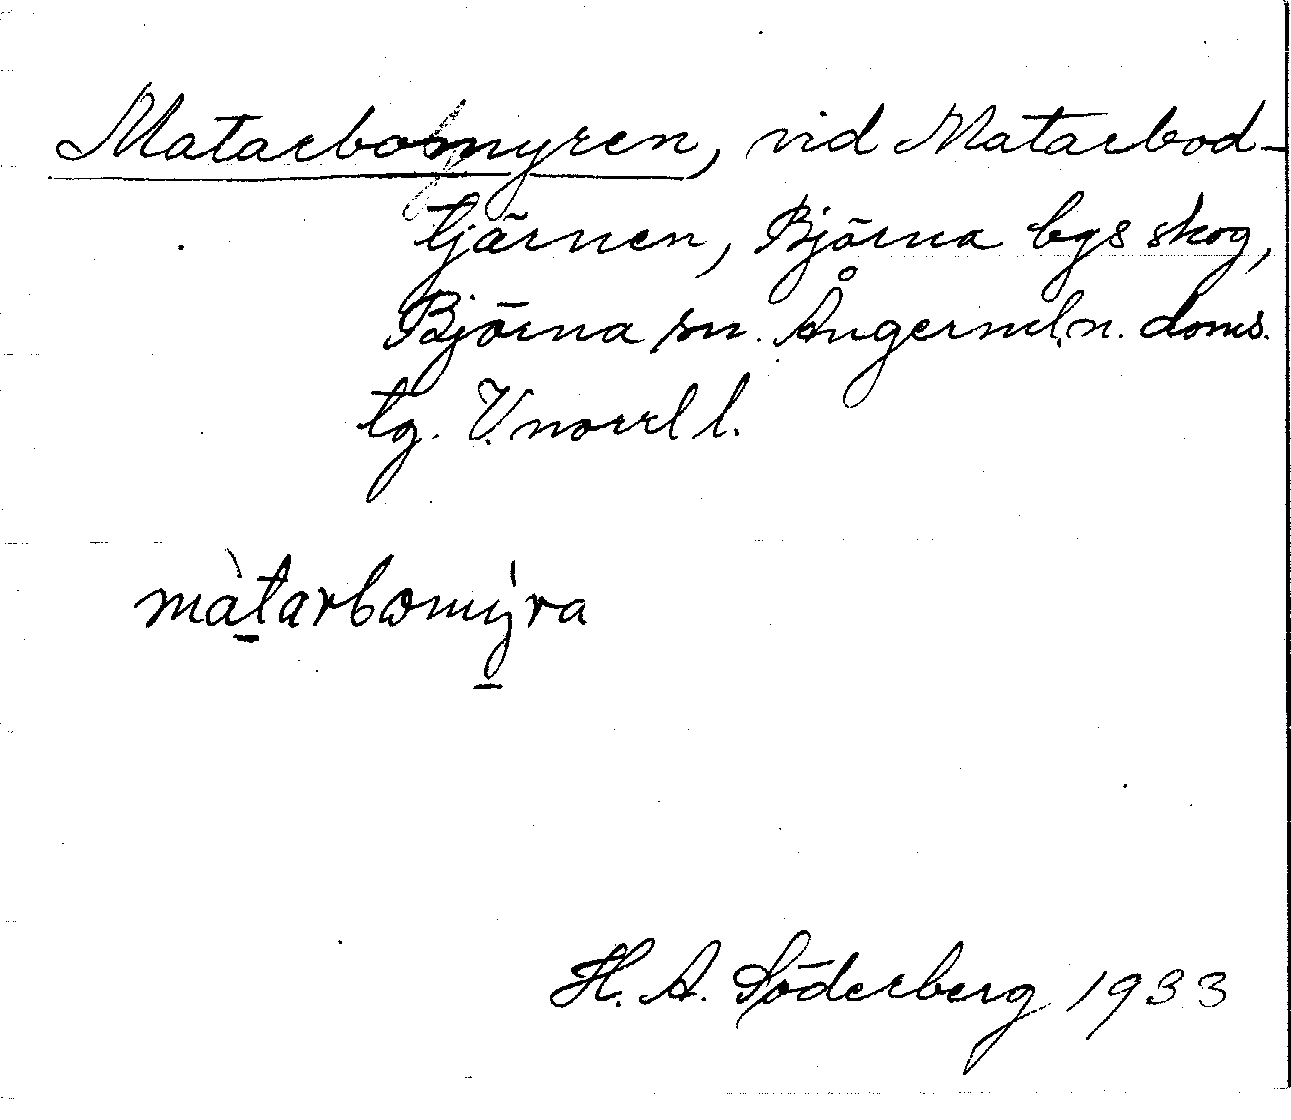 Matarbomyren, vid Matarbod-
tjärnen, Björna bgs skog,
Björna sn. Ångerml.n. doms.
tg. V.norrl l.
màtarbomýra
H. A. Söderberg 1933